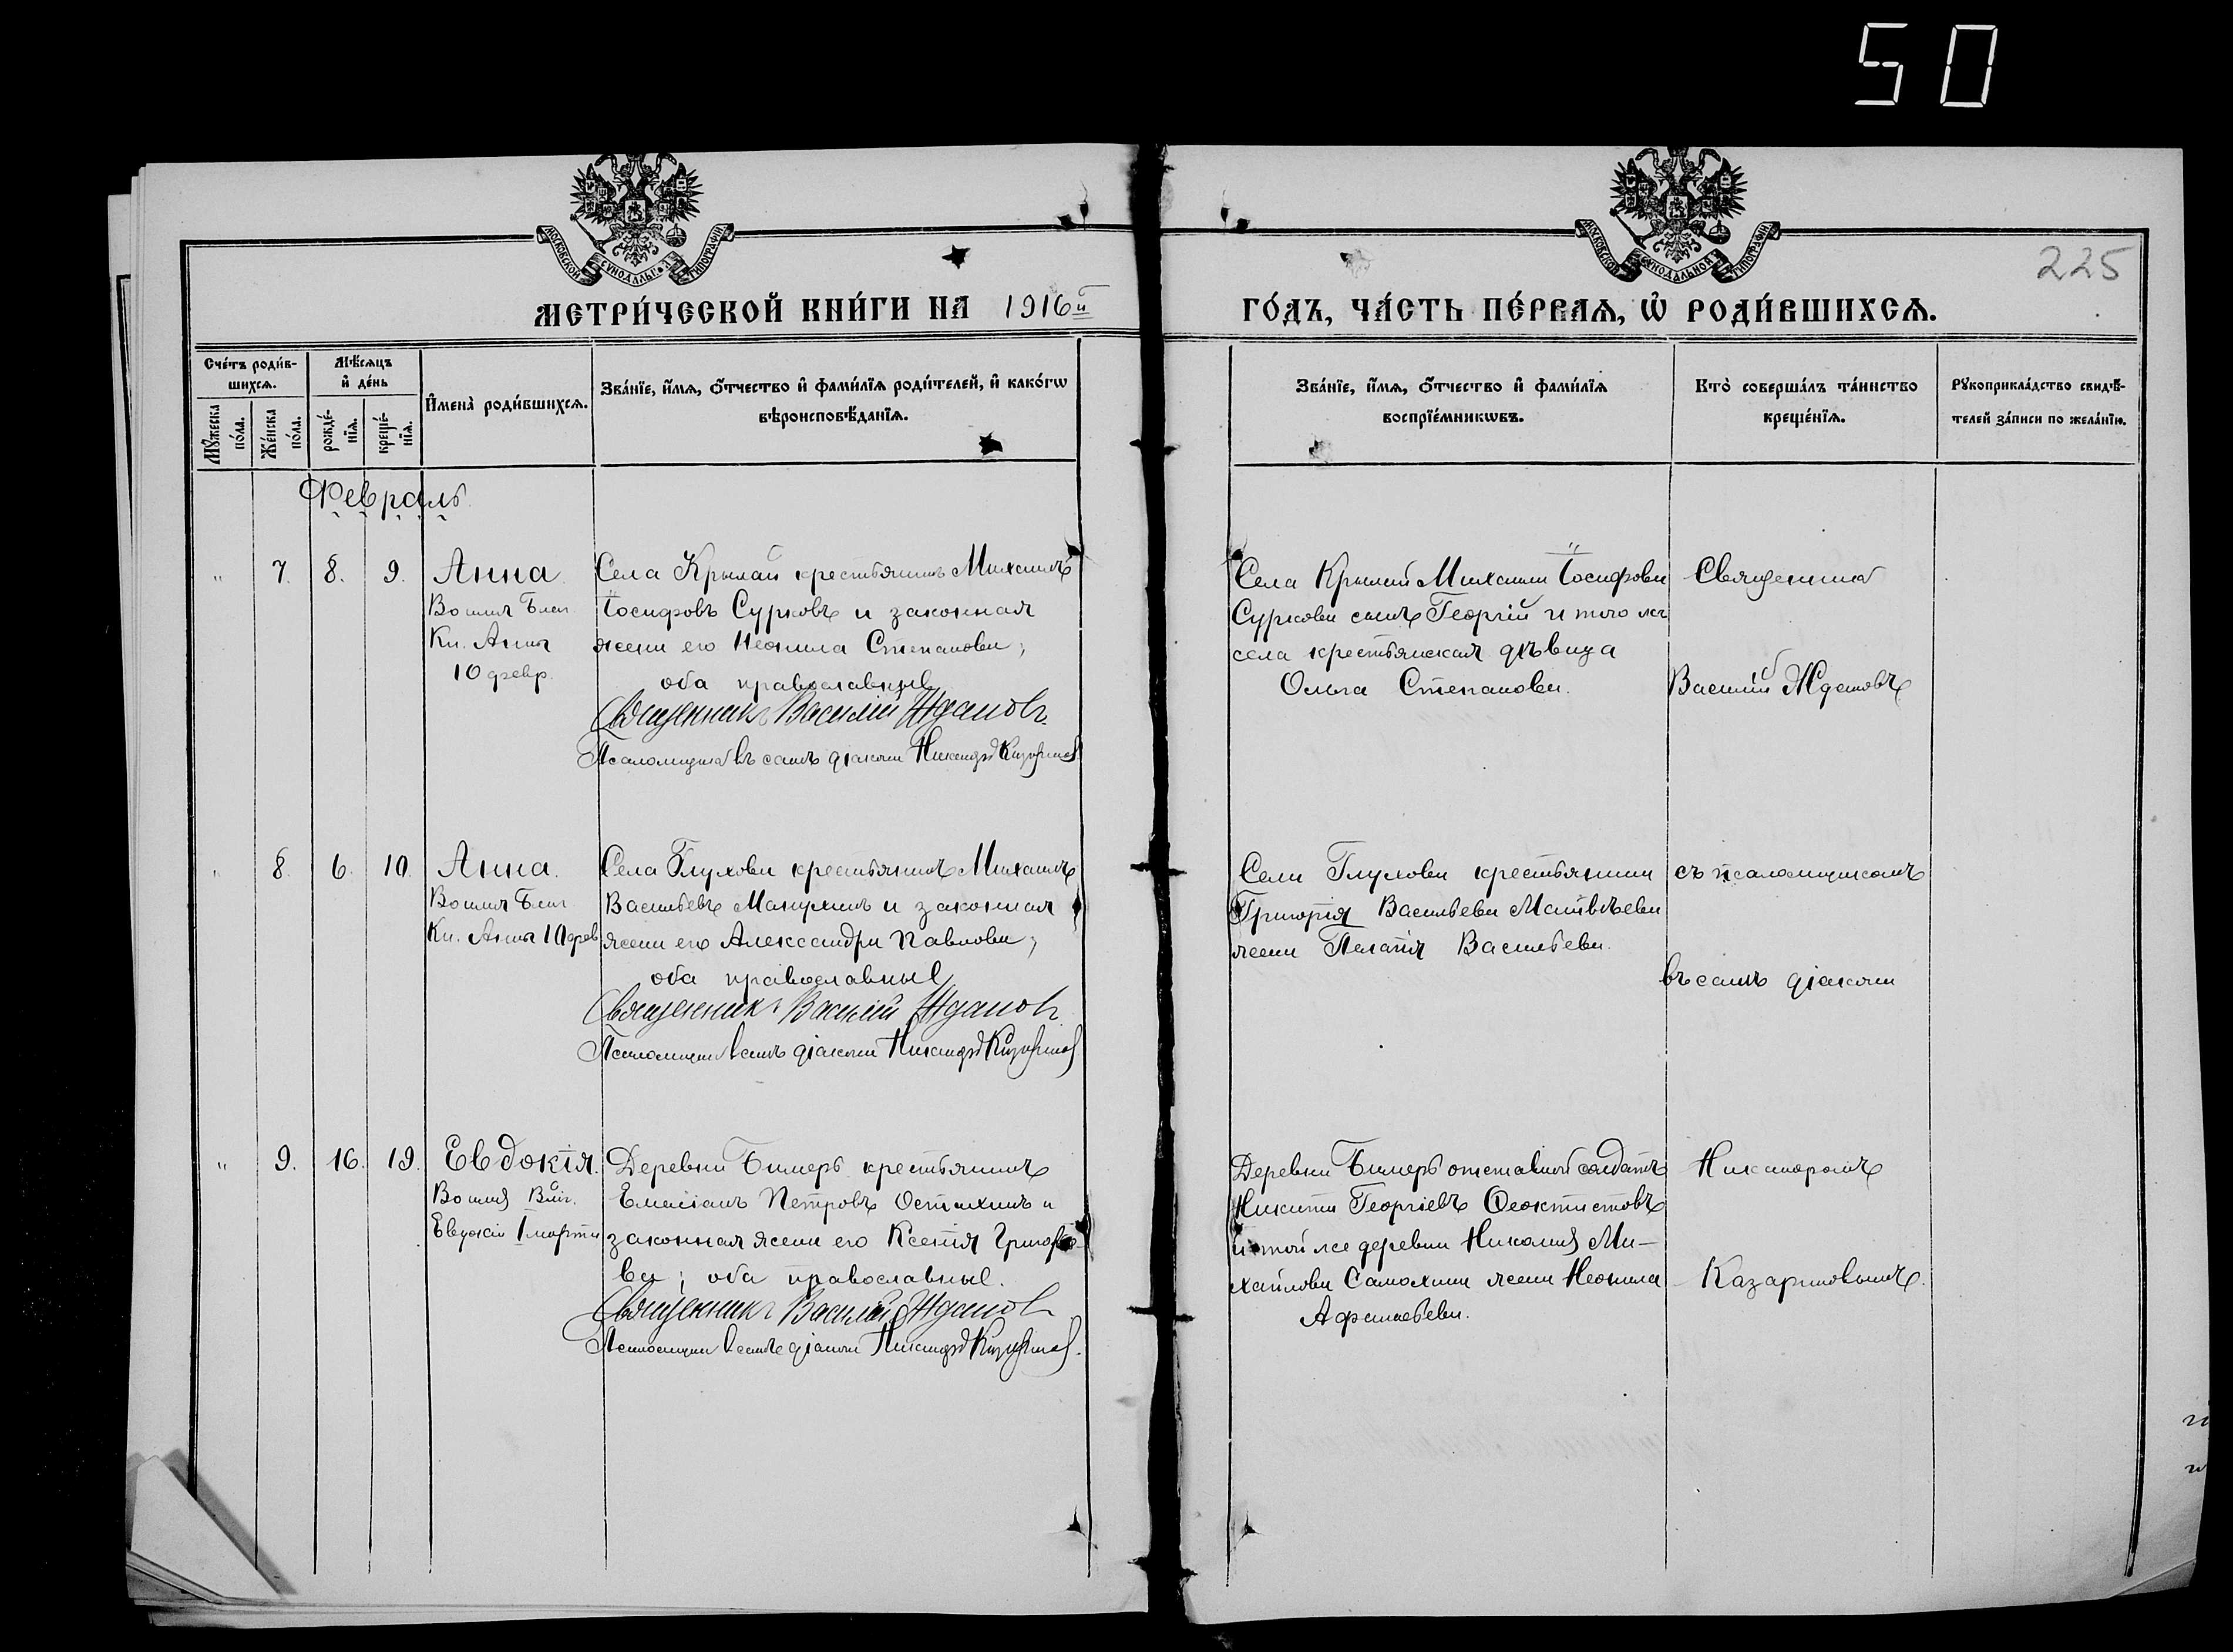 50
МОСКОВСКОЙ СѴНОДАЛЬНОЙ ТИПОГРАФІИ
МОСКОВСКОЙ СѴНОДАЛЬНОЙ ТИПОГРАФІИ
225
МЕТРИ́ЧЕСКОЙ КНИ́ГИ НА 1916й
ГО́ДЪ, ЧА́СТЬ ПЕ́РВАЯ, Ѡ РОДИ́ВШИХСЯ.
Сче́тъ роди́в-
шихся.
Мѣ́сяцъ
и де́нь
Мꙋ́жеска
по́ла.
Же́нска
по́ла.
рожде́-
нїя.
креще́-
нїя.
Имена̀ роди́вшихся.
Зва́нїе, и́мя, о́тчество и фами́лїя роди́телей, и како́гѡ
вѣроисповѣ́данїя.
Зва́нїе, и́мя, о́тчество и фами́лїя
воспрїе́мникѡвъ.
Кто̀ соверша́лъ та́инство
креще́нїя.
Рꙋкоприкла́дство свидѣ́-
телей за́писи по жела́нїю.
Февраль
" 7. 8. 9.
Анна
10 февр.
Села Крылай крестьянинъ Михаилъ
Іосифовъ Сурковъ и законная
жена его Неонила Степанова;
оба православные
Священникъ Василій Ждановъ
Псаломщикъ въ санѣ діакона Никаноръ Казариновъ
Села Крылай Михаила Іосифова
Суркова сынъ Георгій и того же
села крестьянская дѣвица
Ольга Степанова.
Священникъ
Василій Ждановъ
" 8. 6. 10.
Анна.
Села Глухова крестьянинъ Михаилъ
Васильевъ Манухинъ и законная
жена его Александра Павлова;
оба православные
Священникъ Василій Ждановъ
Псаломщикъ въ санѣ діакона Никаноръ Казариновъ
Села Глухова крестьянина
Григорія Васильева Матвѣева
жена Пелагія Васильева.
съ псаломщикомъ
въ санѣ діакона
" 9. 16. 19.
Евдокія.
Евдокіи 1 марта
Деревни Бимерь крестьянинъ
Емеліанъ Петровъ Осташинъ и
законная жена его Ксенія Григорье-
ва; оба православные.
Священникъ Василій Ждановъ
Псаломщикъ въ санѣ діакона Никаноръ Казариновъ.
Деревни Бимерь отставной солдатъ
Никита Георгіевъ Ѳеоктистовъ
и той же деревни Николая Ми-
хайлова Самохина жена Неонила
Афанасьева.
Никаноромъ
Казариновымъ.